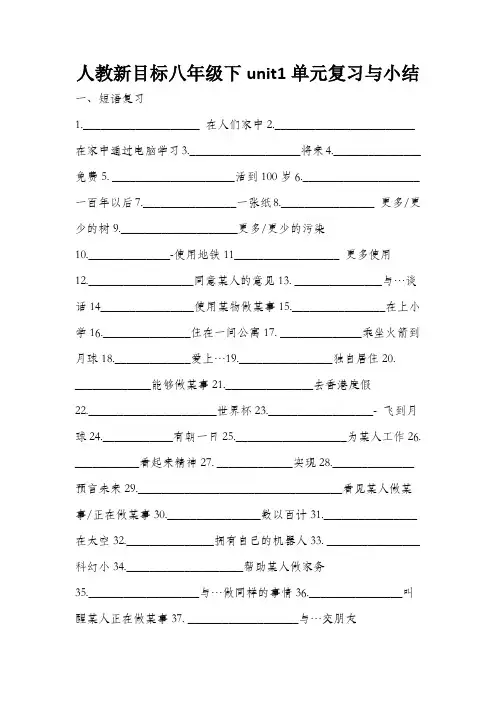 人教新目标八年级下 unit1 单元复习与小结
一、短语复习
1.____________________ 在人们家中 2.________________________
在家中通过电脑学习 3.___________________将来 4._______________
免费 5. _____________________活到 100 岁 6.____________________
一百年以后 7.________________一张纸 8.________________ 更多/更
少的树 9.____________________更多/更少的污染
10.______________-使用地铁 11__________________ 更多使用
12.__________________同意某人的意见 13. _______________与…谈
话 14________________使用某物做某事 15.________________在上小
学 16._______________住在一间公寓 17. ______________乘坐火箭到
月球 18._____________爱上…19.________________独自居住 20.
_____________能够做某事 21._______________去香港度假
22.______________________世界杯 23.__________________- 飞到月
球 24.____________有朝一日 25.___________________为某人工作 26.
___________看起来精神 27. _____________实现 28.______________
预言未来 29.___________________________________看见某人做某
事/正在做某事 30.________________数以百计 31.________________
在太空 32._______________拥有自己的机器人 33. ________________
科幻小 34.____________________帮助某人做家务
35.___________________与…做同样的事情 36.________________叫
醒某人正在做某事 37. ___________________与…交朋友